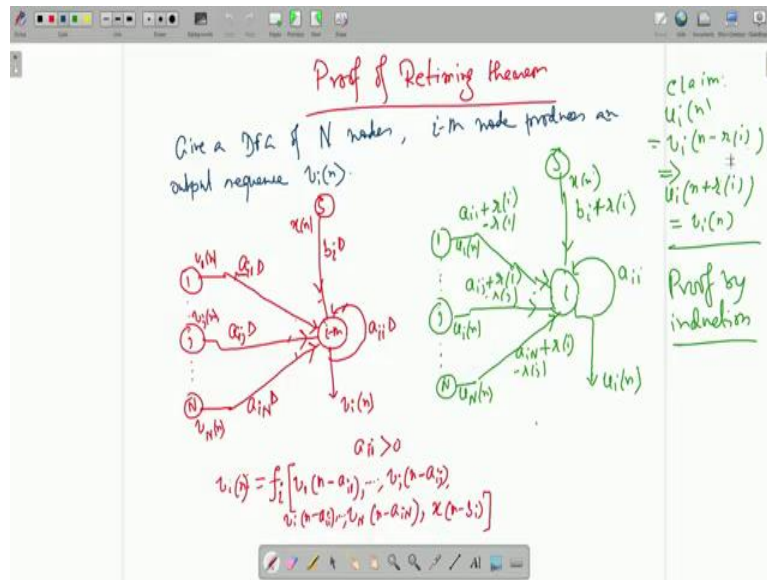 Proof of Retiming theorem
Give a DFG of N nodes, i-th node produces an
output sequence vᵢ(n).
S
x(n)
bᵢD
1
v₁(n)
aᵢ₁D
j
vⱼ(n)
aᵢⱼD
N
v_N(n)
a_iN D
i-th
aᵢᵢD
vᵢ(n)
aᵢᵢ>0
vᵢ(n) = fᵢ[v₁(n-aᵢ₁), ..., vⱼ(n-aᵢⱼ),
vᵢ(n-aᵢᵢ)..., v_N(n-a_iN), x(n-bᵢ)]
S
x(n)
bᵢ+r(i)
1
aᵢ₁+r(i)
-r(i)
u₁(n)
j
aᵢⱼ+r(i)
-r(j)
uⱼ(n)
N
a_iN+r(i)
-r(j)
u_N(n)
i
aᵢᵢ
uᵢ(n)
claim:
uᵢ(n)
= vᵢ(n-r(i))
=>
uᵢ(n+r(i))
= vᵢ(n)
Proof by
induction